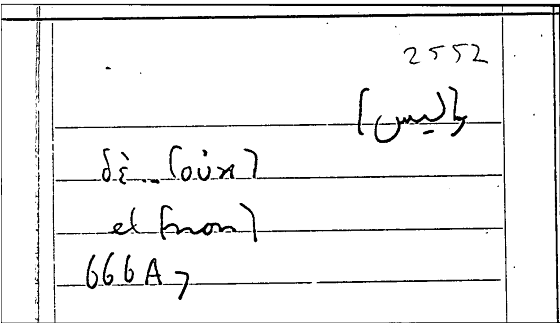 2552
و[ليس]
δὲ .. [οὐκ]
et [non]
666A7